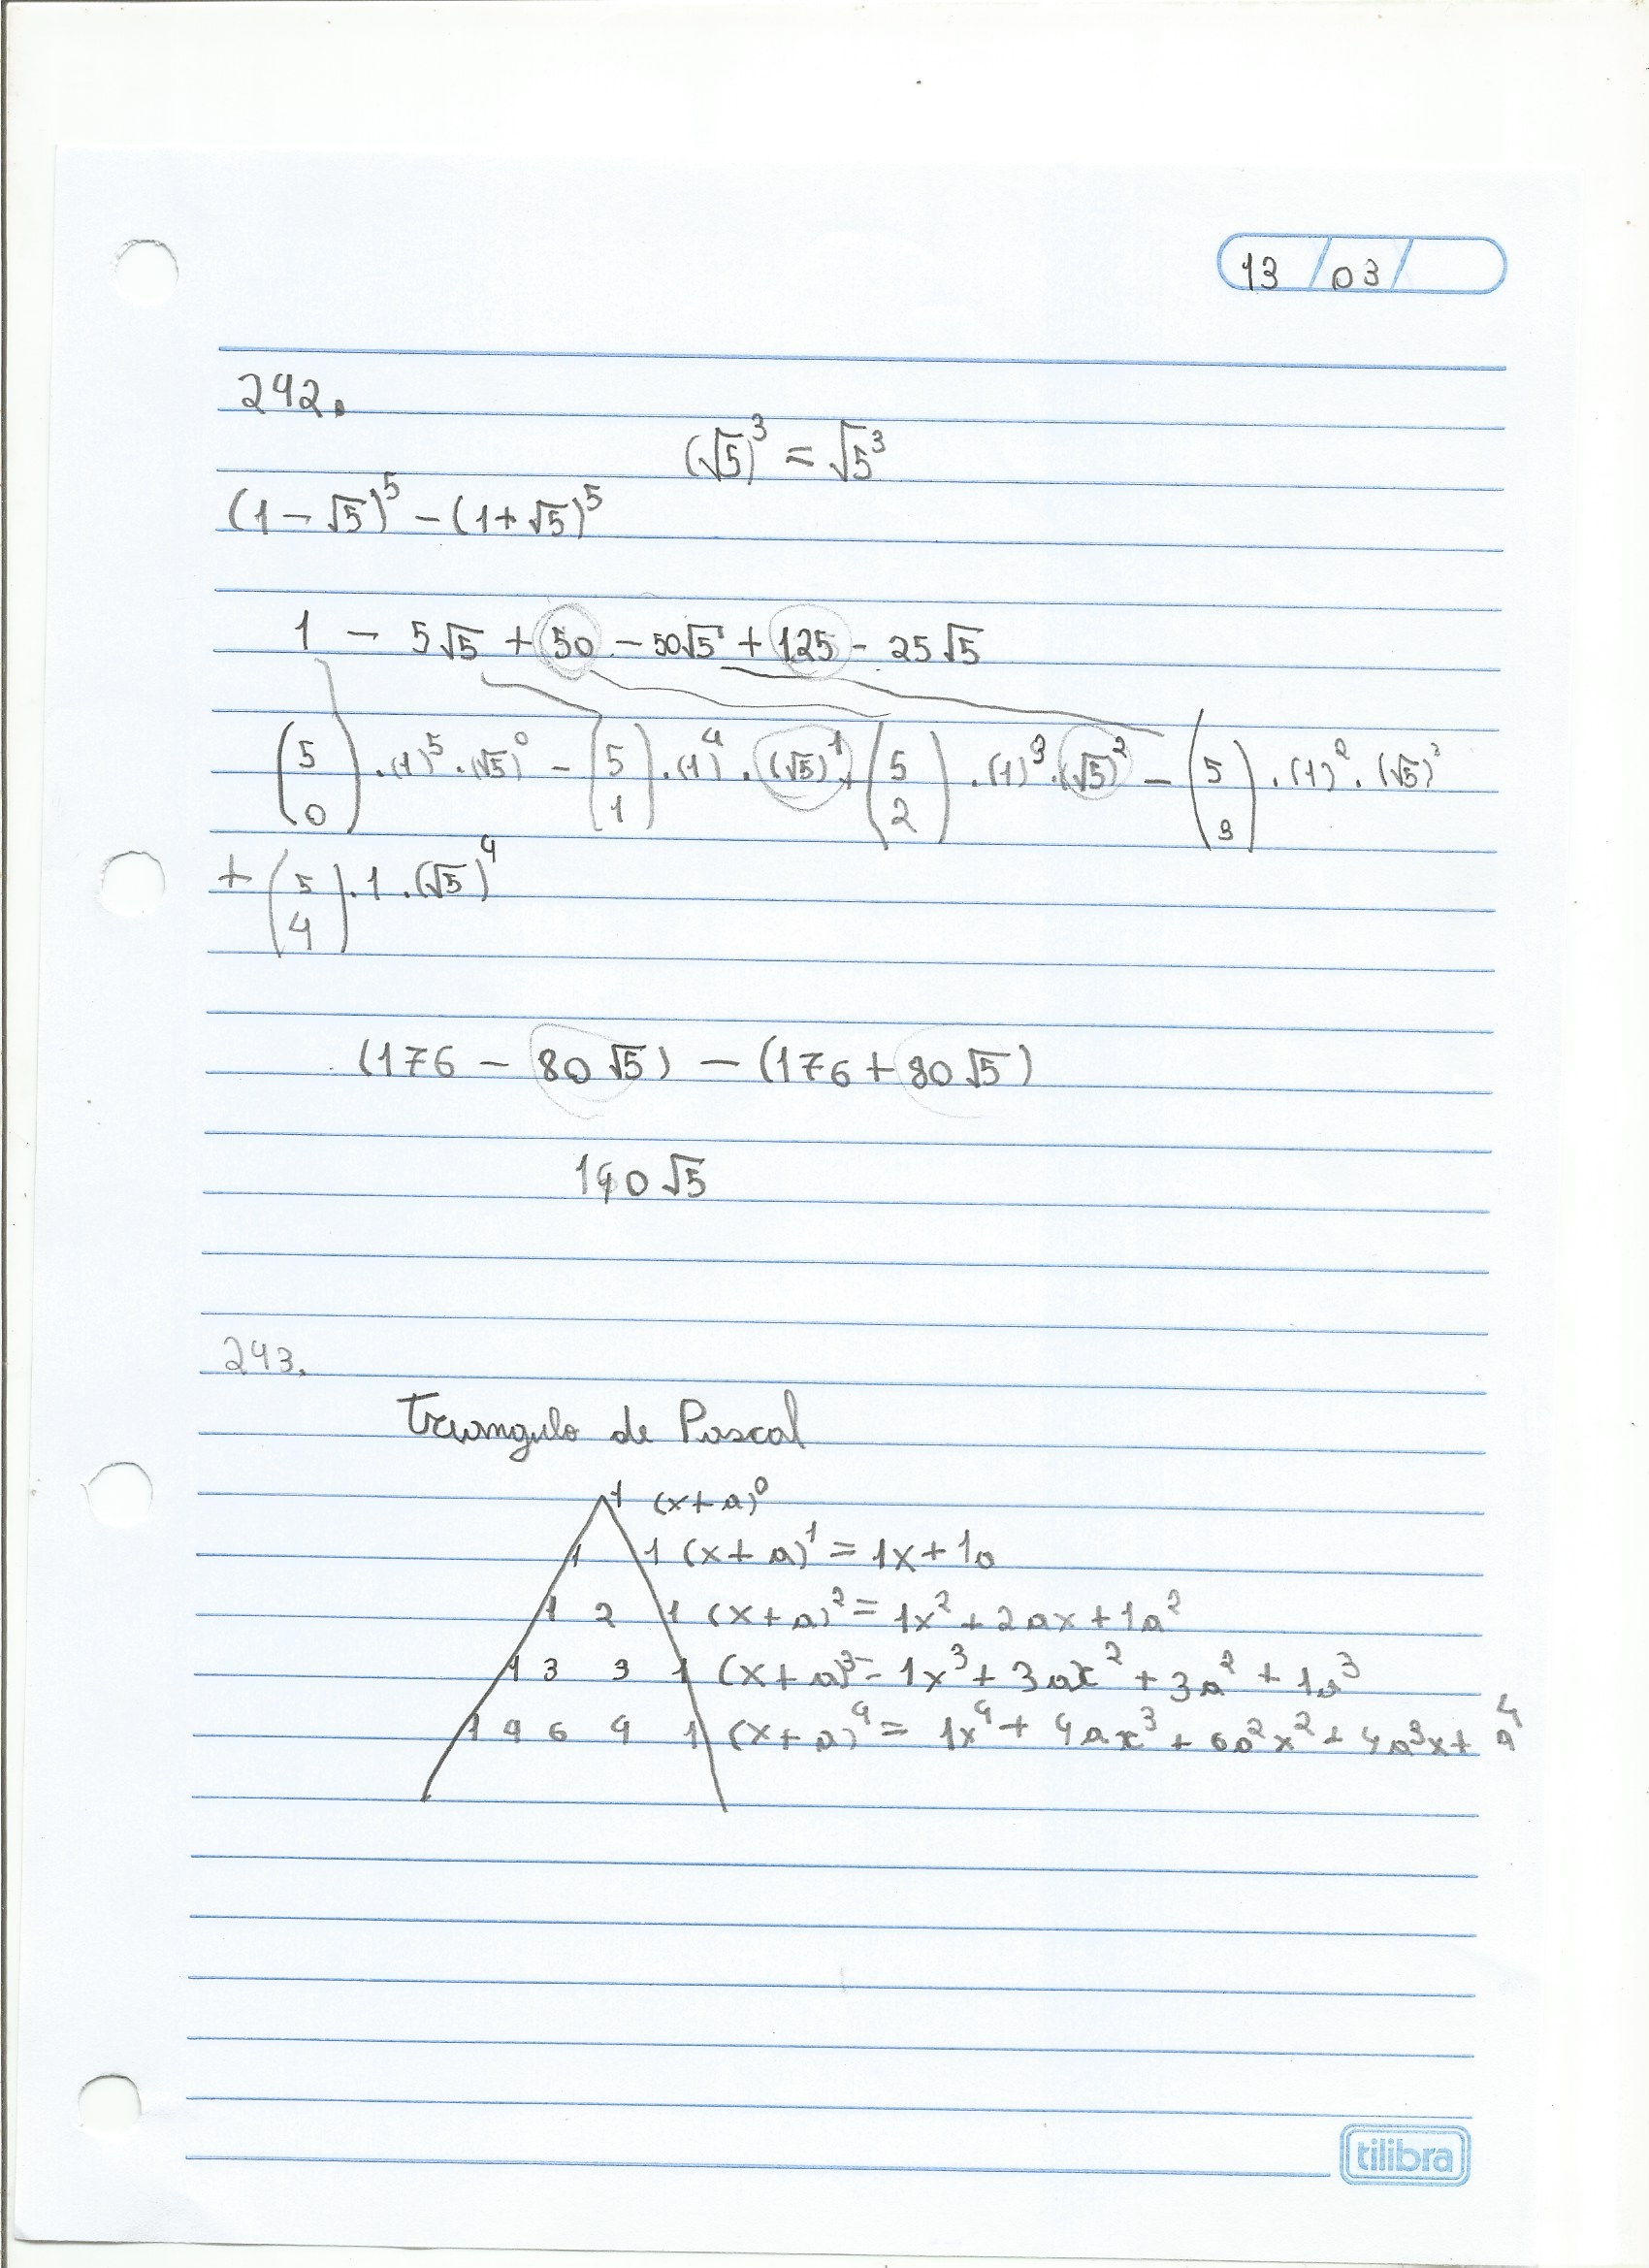 13 / 03 /
242.
(√5)³ = √5³
(1 - √5)⁵ - (1 + √5)⁵
1 - 5√5 + 50 - 50√5 + 125 - 25√5
(5 0) . (1)⁵ . (√5)⁰ - (5 1) . (1)⁴ . (√5)¹ + (5 2) . (1)³ . (√5)² - (5 3) . (1)² . (√5)³
+ (5 4) . 1 . (√5)⁴
(176 - 80√5) - (176 + 80√5)
160√5
243.
Triangulo de Pascal
1 (x + a)⁰
1 1 (x + a)¹ = 1x + 1a
1 2 1 (x + a)² = 1x² + 2ax + 1a²
1 3 3 1 (x + a)³ = 1x³ + 3ax² + 3a² + 1a³
1 4 6 4 1 (x + a)⁴ = 1x⁴ + 4ax³ + 6a²x² + 4a³x + a⁴
tilibra